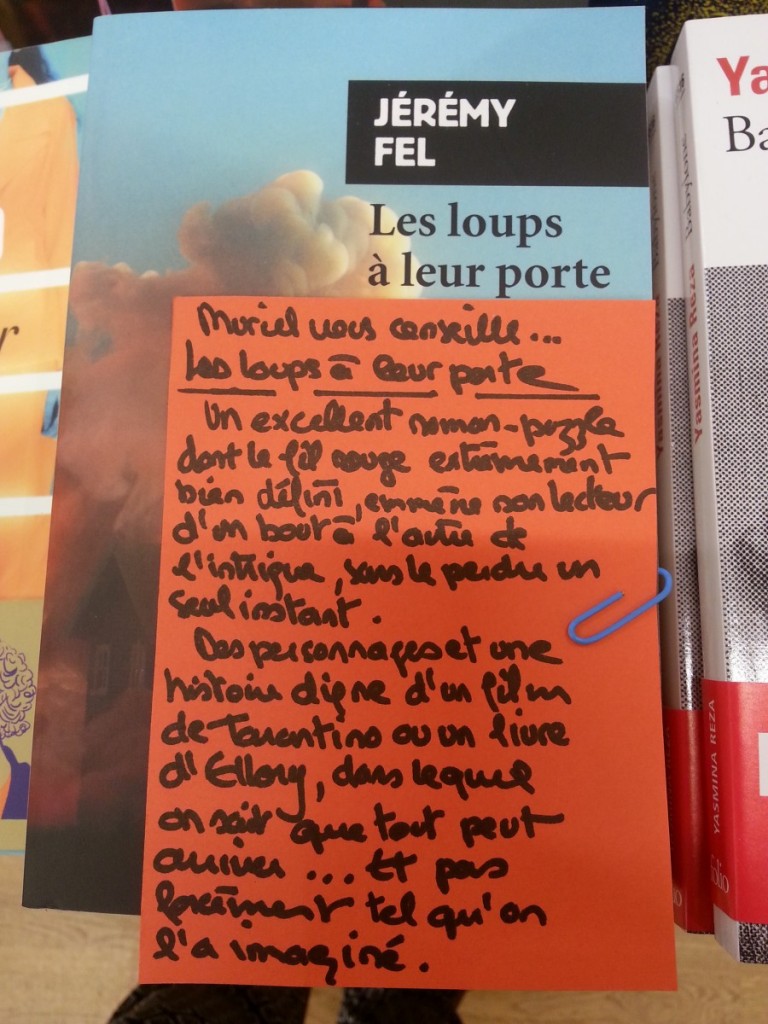 JÉRÉMY
FEL
Les loups
à leur porte
Muriel vous conseille...
Les loups à leur porte
Un excellent roman-puzzle
dont le fil rouge extrêmement
bien défini, emmène son lecteur
d'un bout à l'autre de
l'intrigue, sans le perdre un
seul instant.
Des personnages et une
histoire digne d'un film
de Tarantino ou un livre
d'Ellory, dans lequel
on sait que tout peut
arriver... Et pas
forcément tel qu'on
l'a imaginé.
r
Yasmina Reza
Babylone
Ya
Ba
YASMINA REZA
folio